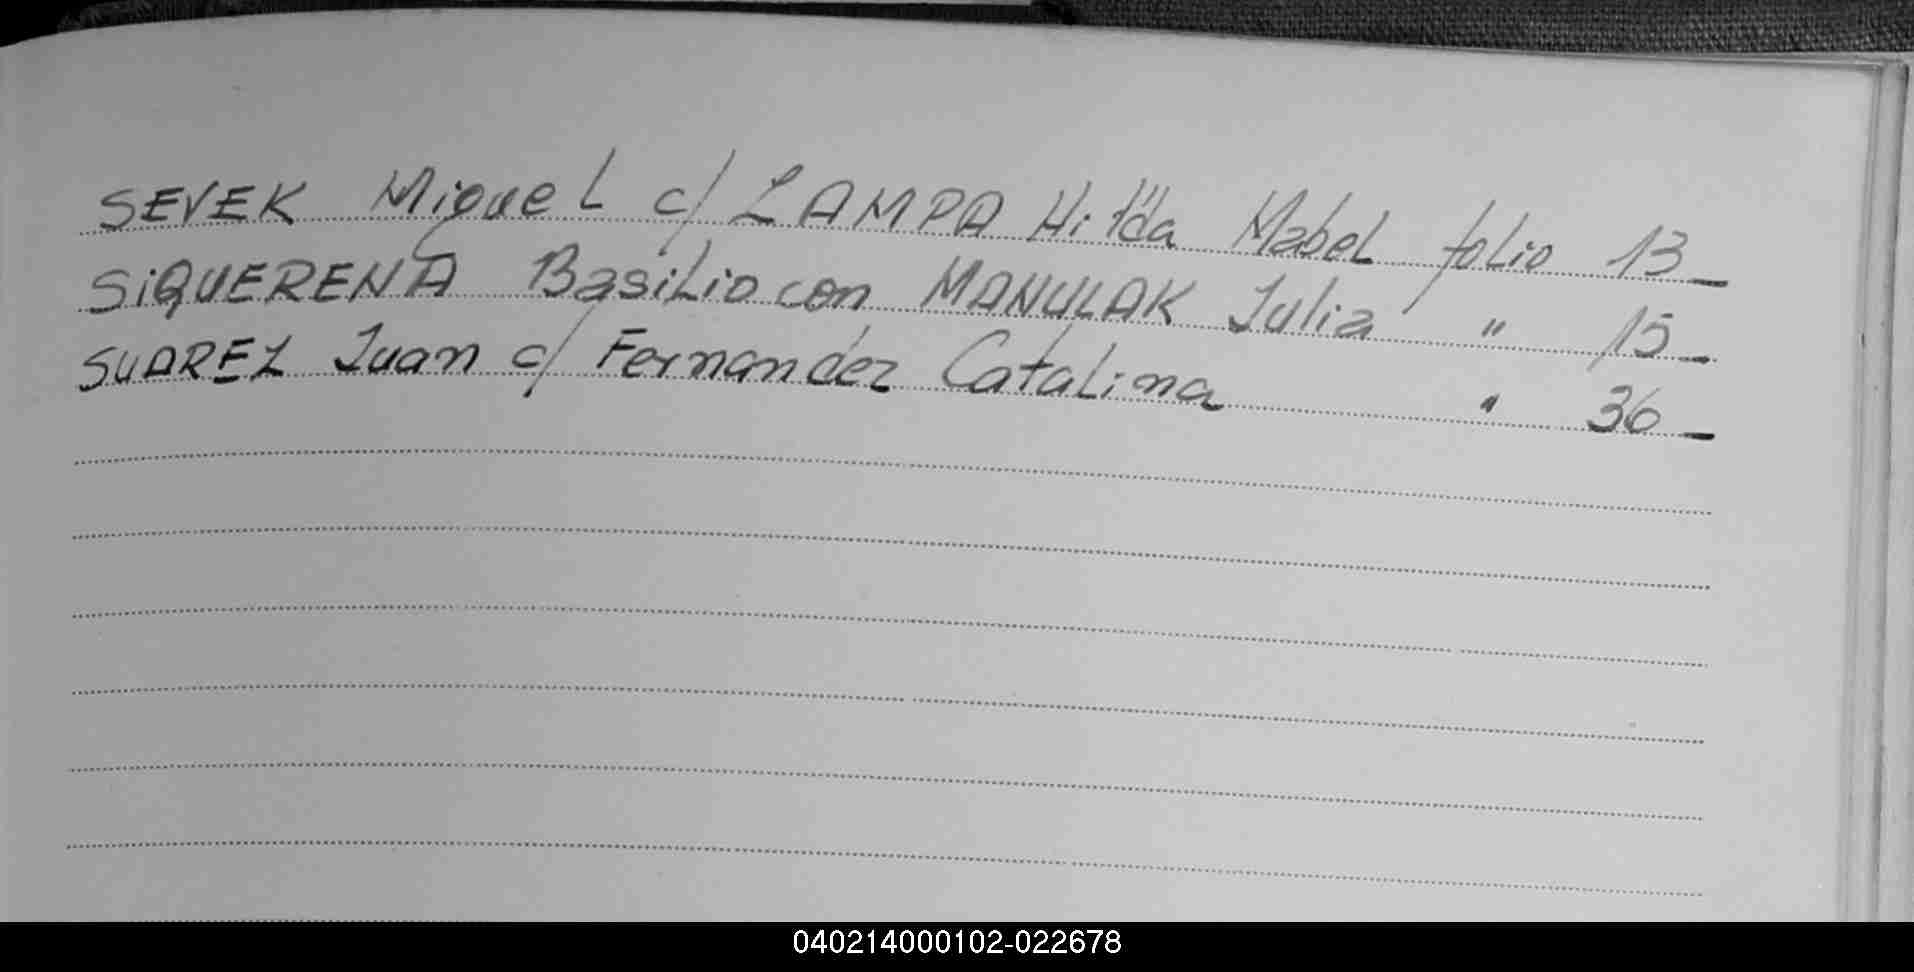 SEVEK Miguel c/ LAMPA Hilda Mabel folio 13_
SiQUERENA Basilio con MANULAK Julia " 15_
SUAREZ Juan c/ Fernandez Catalina " 36_
040214000102-022678